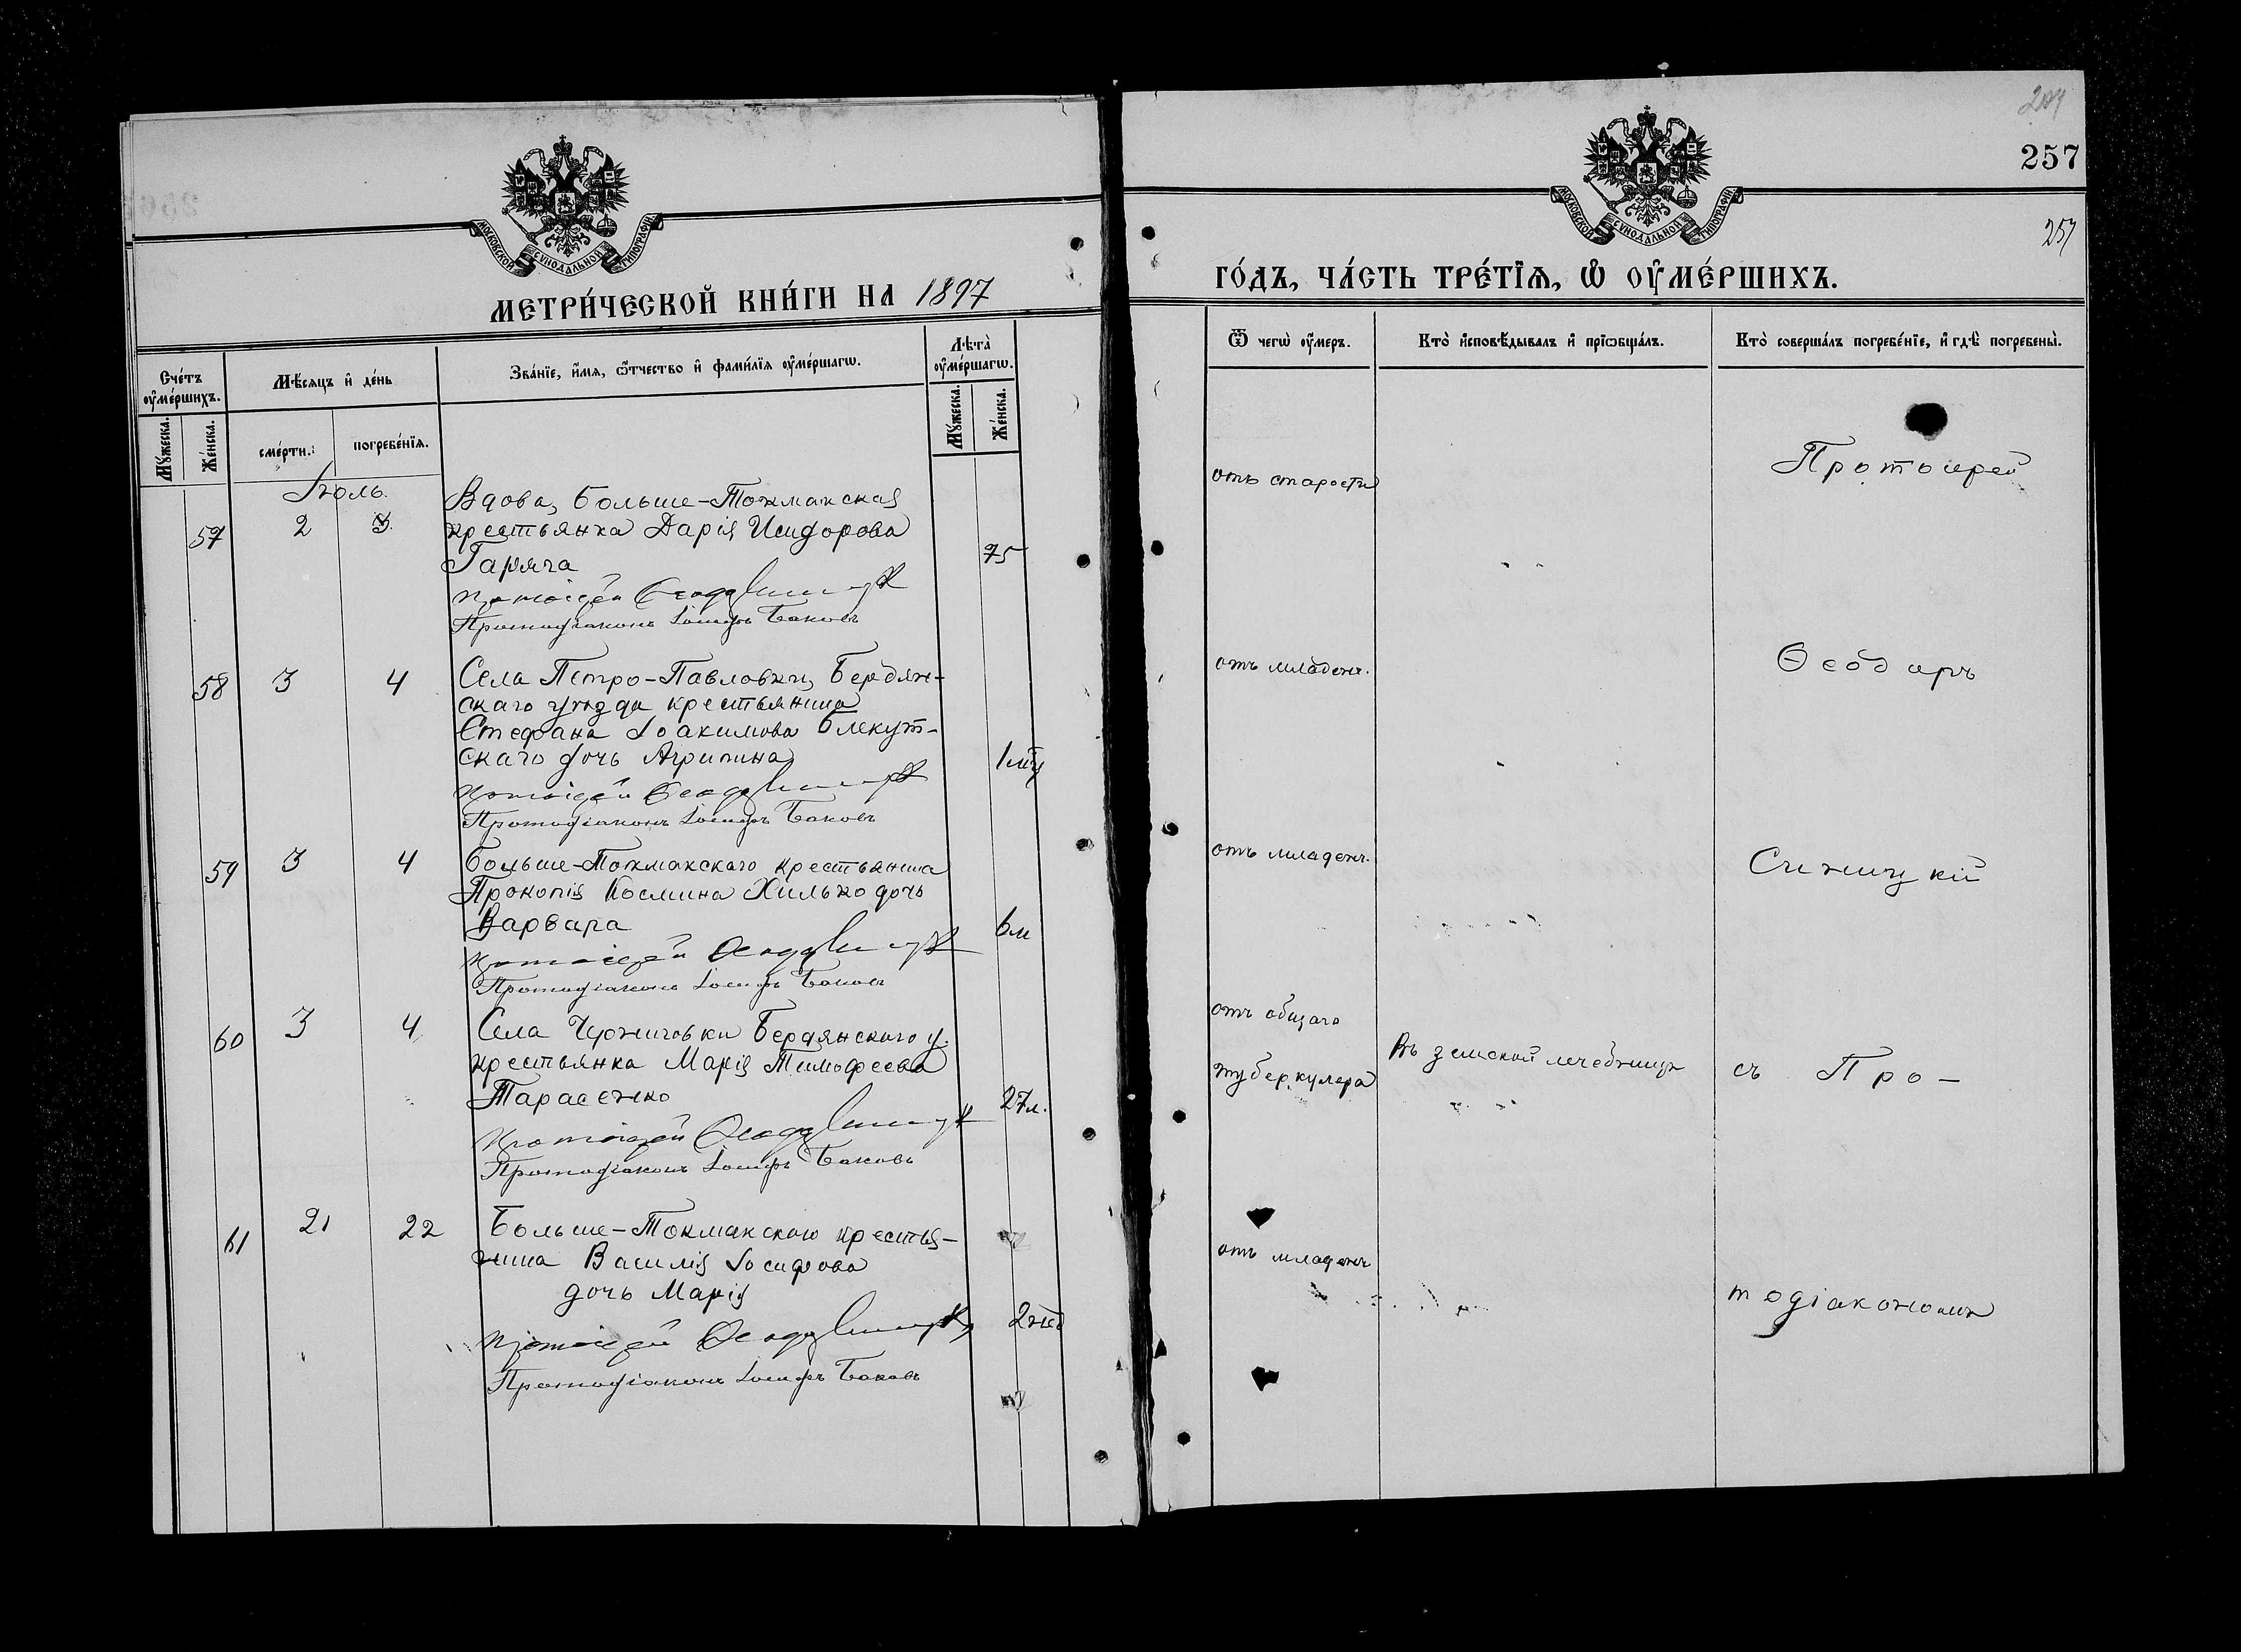 257
257
МОСКОВСКОЙ СѴНОДАЛЬНОЙ ТИПОГРАФІИ
МЕТРИ́ЧЕСКОЙ КНИ́ГИ НА 1897
Сче́тъ ᲂу҆ме́ршихъ.
Мѣ́сяцъ и҆ де́нь
Зва́нїе, и҆́мя, ѻ҆́тчество и҆ фами́лїя ᲂу҆ме́ршагѡ.
Лѣ́та ᲂу҆ме́ршагѡ.
Мꙋ́жеска.
Же́нска.
сме́рти.
погребе́нїя.
Мꙋ́жеска.
Же́нска.
Іюль.
57 2 3 Вдова, Больше-Токмакская
крестьянка Дарія Исидорова
Гаряча 75
Протоіерей Ѳеодоръ
Протодіаконъ Іосифъ Баковъ
58 3 4 Села Петро-Павловки, Бердян-
скаго уѣзда крестьянина
Стефана Іоакимова
скаго дочь Агрипина
Протоіерей Ѳеодоръ
Протодіаконъ Іосифъ Баковъ
59 3 4 Больше-Токмакскаго крестьянина
Прокопія Космина Хилько дочь
Варвара 6 м
Протоіерей Ѳеодоръ
Протодіаконъ Іосифъ Баковъ
60 3 4 Села Черниговки Бердянскаго у.
крестьянка Марія Тимофеева
Тарасенко 27 л.
Протоіерей Ѳеодоръ
Протодіаконъ Іосифъ Баковъ
61 21 22 Больше-Токмакскаго крестья-
нина Василія Іосифова
дочь Марія
2 нед
Протоіерей Ѳеодоръ
Протодіаконъ Іосифъ Баковъ
МОСКОВСКОЙ СѴНОДАЛЬНОЙ ТИПОГРАФІИ
ГО́ДЪ, ЧА́СТЬ ТРЕ́ТЇѦ, Ѡ҆ ОУ҆МЕ́РШИХЪ.
Ѿ чегѡ̀ ᲂу҆́меръ.
Кто̀ и҆сповѣ́дывалъ и҆ прїѡбща́лъ.
Кто̀ соверша́лъ погребе́нїе, и҆ гдѣ̀ погребены̀.
отъ старости
Протоіерей
отъ младенч.
Ѳеодоръ
отъ младенч.
Синицкій
отъ общаго
туберкулера
Въ земской лечебницѣ
съ Про-
отъ младенч
тодіакономъ